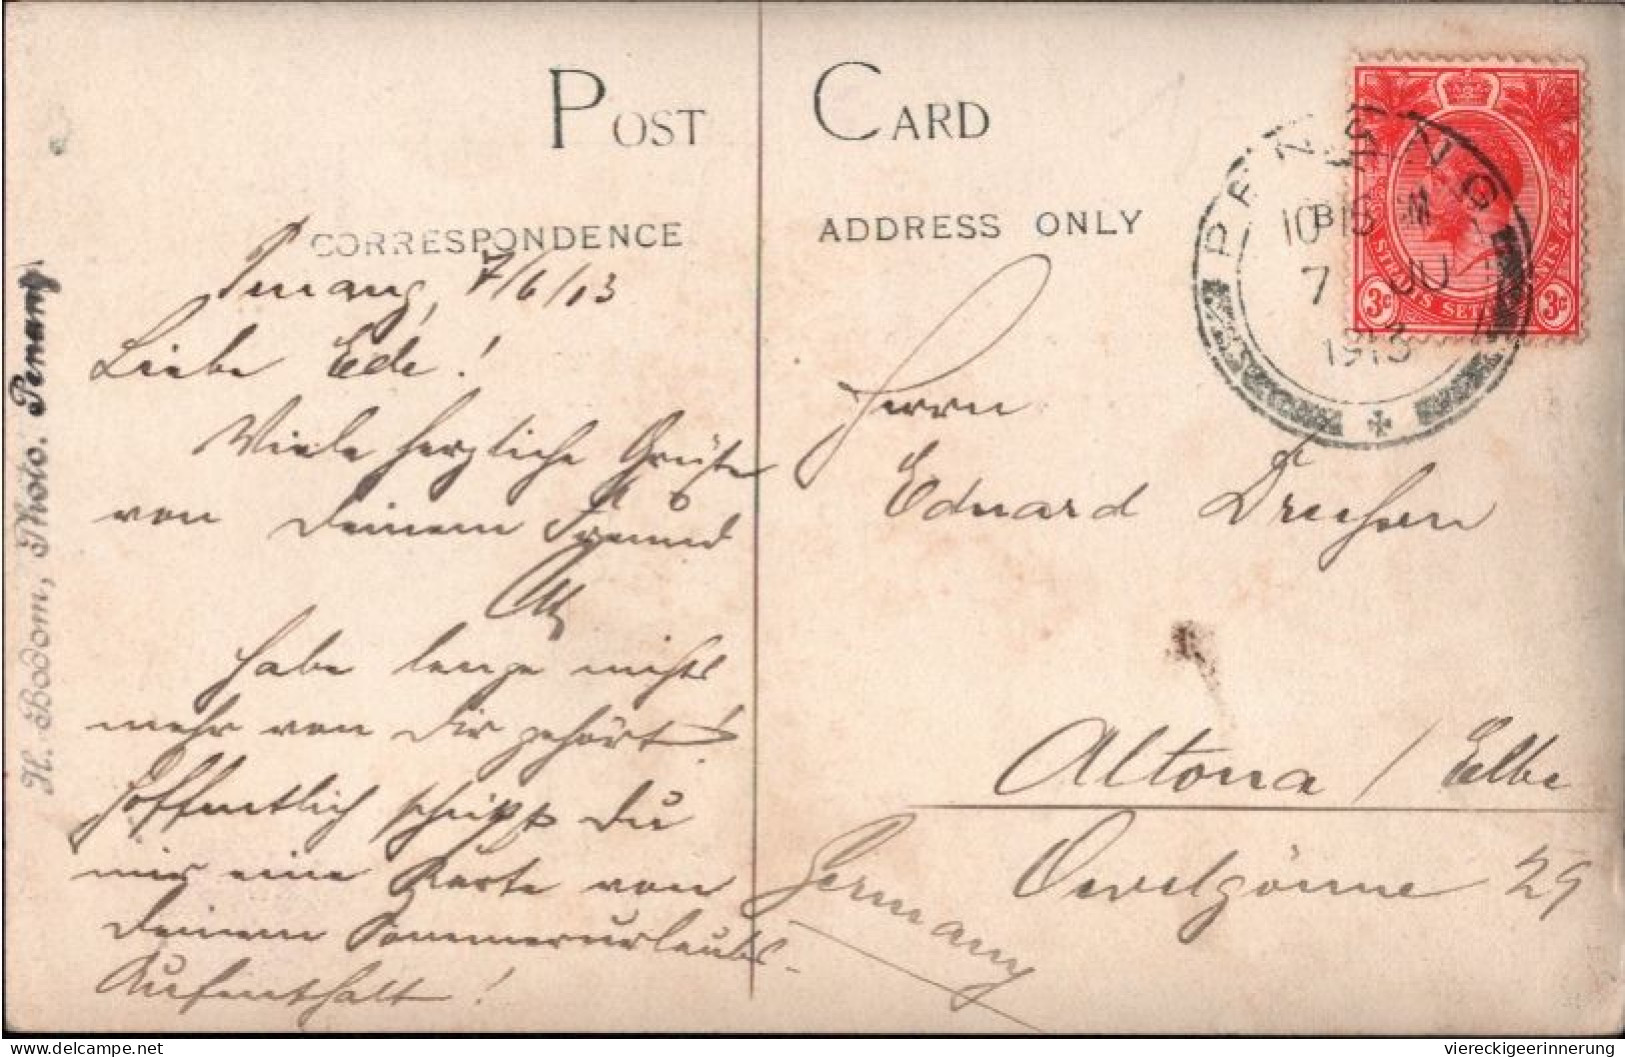 POST CARD
CORRESPONDENCE
ADDRESS ONLY
Penang, 7/6/13
Liebe Ede!
Viele herzliche Grüße
von Deinem Freund
Habe lange nichts
mehr von Dir gehört!
Hoffentlich schickst Du
mir eine Karte von
Deinem Sommerurlaubs-
Aufenthalt!
Herrn
Eduard
Altona / Elbe
Oevelgönne 29
Germany
PENANG
7 JU
1913
STRAITS SETTLEMENTS
3c 3c
H. Bodom, Photo. Penang.
delcampe.net
viereckigeerinnerung